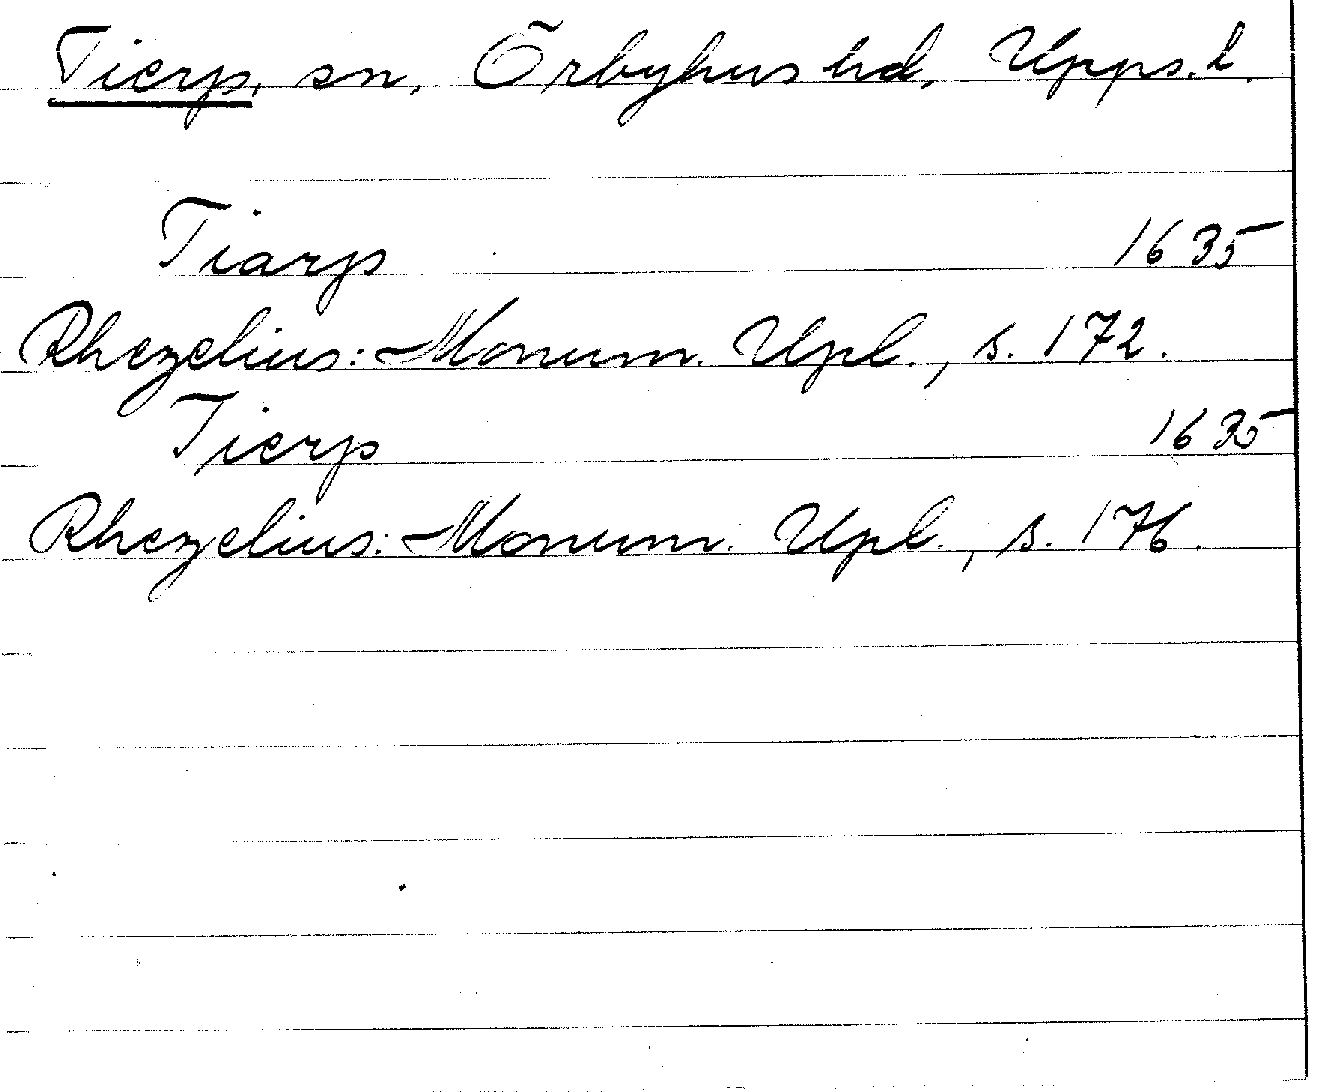 Tierp, sn, Örbyhus hd, Upps. l.
Tiarp 1635
Rhezelius: Monum. Upl., s. 172.
Tierp 1635
Rhezelius: Monum. Upl., s. 176.